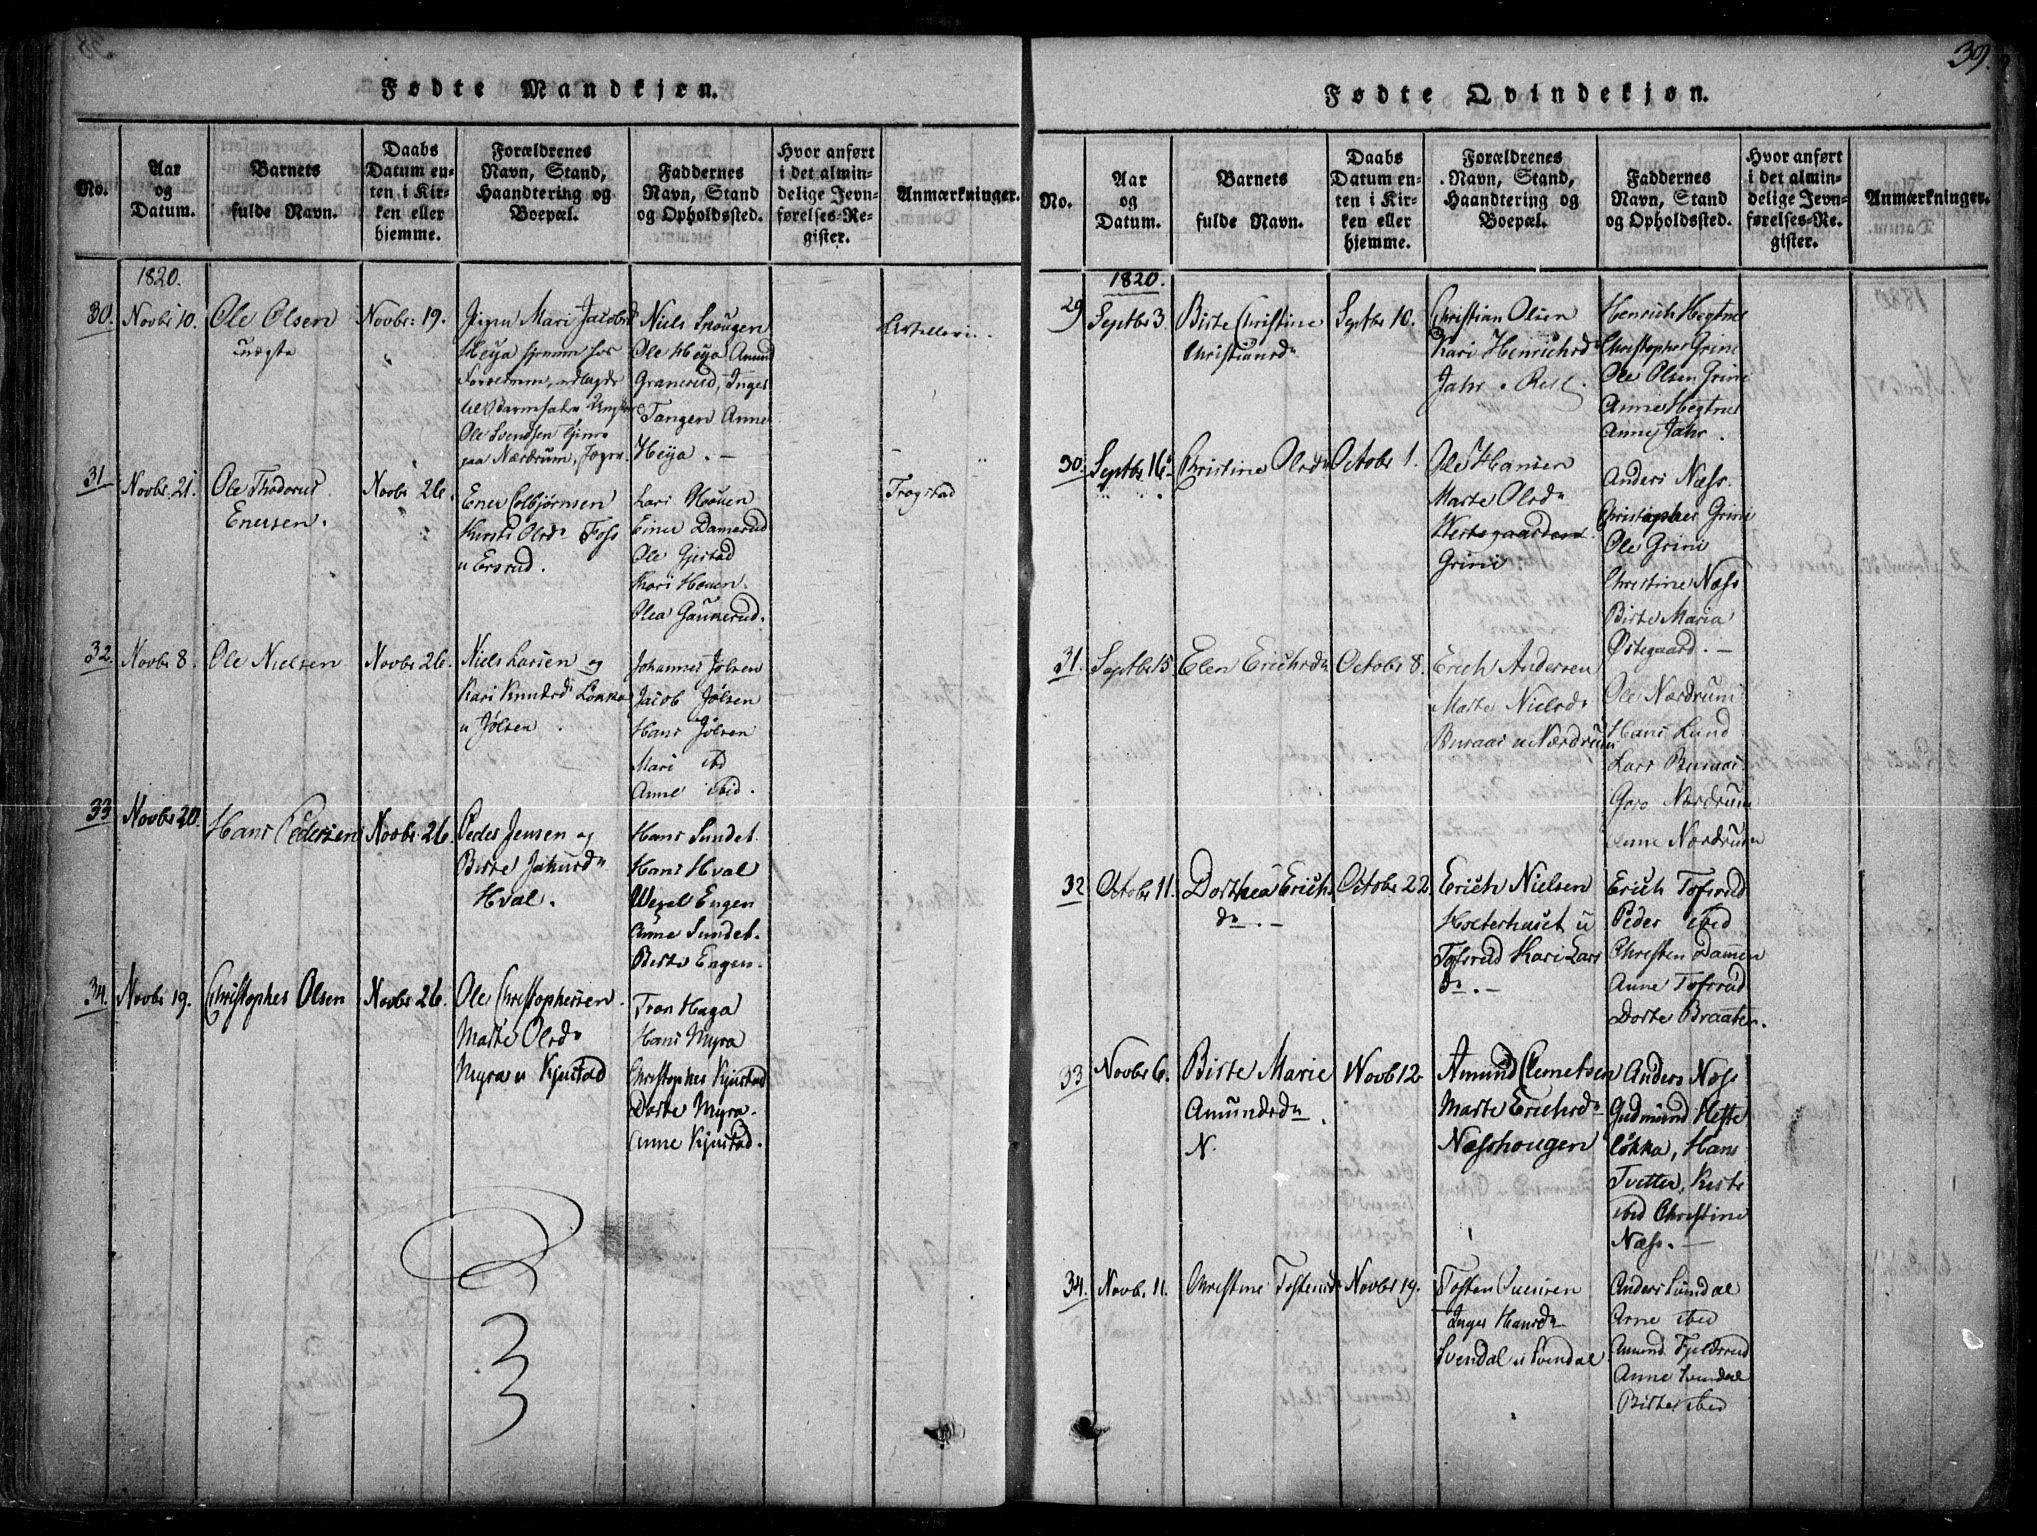 39.
Fødte Mandkjøn.
No.
Aar
og
Datum.
Barnets
fulde Navn.
Daabs
Datum en-
ten i Kir-
ken eller
hjemme.
Forældrenes
Navn, Stand,
Haandtering og
Boepæl.
Faddernes
Navn, Stand
og Opholdssted.
Hvor anført
i det almin-
delige Jevn-
førelses-Re-
gister.
Anmærkninger.
1820.
30.
Novbr 10.
Ole Olsen
uægte
Novbr: 19.
Pigen Mari Jacobsd
Heÿa hjemme hos
til Barnefader
Ole Svendsen
paa Nærdrum,
Niels
Ole Heÿa Amund
Granerud, Inger
Tangen Anne
Heÿa. -
31
Novbr. 21.
Ole Thodorus
Enersen.
Novbr 26.
Ener Colbjørnsen
Kirsti Olsdr Foss
u Ersrud.
Lars
Einer Damerud
Ole Gjestad
Kari Houen.
Olea
Trøgstad
32.
Novbr 8.
Ole Nielsen
Novbr 26.
Niels Larsen og
Kari Knudsdr Løkka
u Jølsen.
Johannes Jølsen
Jacob Jølsen
Hans Jølsen
Mari ibd
Anne ibid.
33
Novbr 20.
Hans Pedersen
Novbr 26.
Peder Jensen og
Birte
Hval.
Hans Sundet.
Hans Hval
Engen
Anne Sundet.
Birte Engen.
34.
Novbr 19.
Christopher Olsen
Novbr 26.
Ole Christophersen.
Marte Olsdr
Myra u Kjustad
Tron Haga
Hans Myra
Christopher Kjustad
Dorte Myra.
Anne Kjustad.
Fødte Qvindekjøn.
No.
Aar
og
Datum.
Barnets
fulde Navn.
Daabs
Datum en-
ten i Kir-
ken eller
hjemme.
Forældrenes
Navn, Stand,
Haandtering og
Boepæl.
Faddernes
Navn, Stand
og Opholdssted.
Hvor anført
i det almin-
delige Jevn-
førelses-Re-
gister.
Anmærkninger.
1820.
29
Septbr 3.
Birte Christine
Christiansdr
Septbr 10.
Christian Olsen
Kari Henrichsdr
Jahr
Henrich Hegtnes
Christopher Grini
Ole Olsen Grini
Anne Hegtnes
Anne Jahr.
30.
Septbr 16.
Christine Olsdr
Octobr 1.
Ole Hansen
Marte Olsdr
Grini
Anders Næss.
Christopher Grini
Ole Grini
Christine Næss
Birte Maria
Østegaard. -
31.
Septbr 15
Elen Erichsdr
Octobr 8.
Erich Andersen
Marte Nielsdr
Buraas u Nærdrum
Ole Nærdrum
Hans Lund
Lars Buraas
Goro Nærdrum
Anne Nærdrum
32
Octobr 11.
Dorthea Erichs
dr. -
Octobr 22.
Erich Nielsen
Holterhuset u
Tofsrud Kari Lars
dr. -
Erich Tofsrud
Peder ibid
Christen Damen
Anne Tofsrud
Dorte Braaten.
33
Novbr 6.
Birte Marie
Amundsdr
N.
Novb 12.
Amund Clemetsen
Marte Erichsdr
Næsshougen
Anders Næss
Gudmund Heste
løkka, Hans
Tvetter, Kirsti
ibid Christine
Næss. -
34.
Novb. 11.
Christine Tostensdr
Novbr 19.
Tosten
Inger Hansdr
Svendal u Svendal
Anders Svendal
Arne ibid
Amund Fjeldsrud
Anne Svendal
Birte ibid